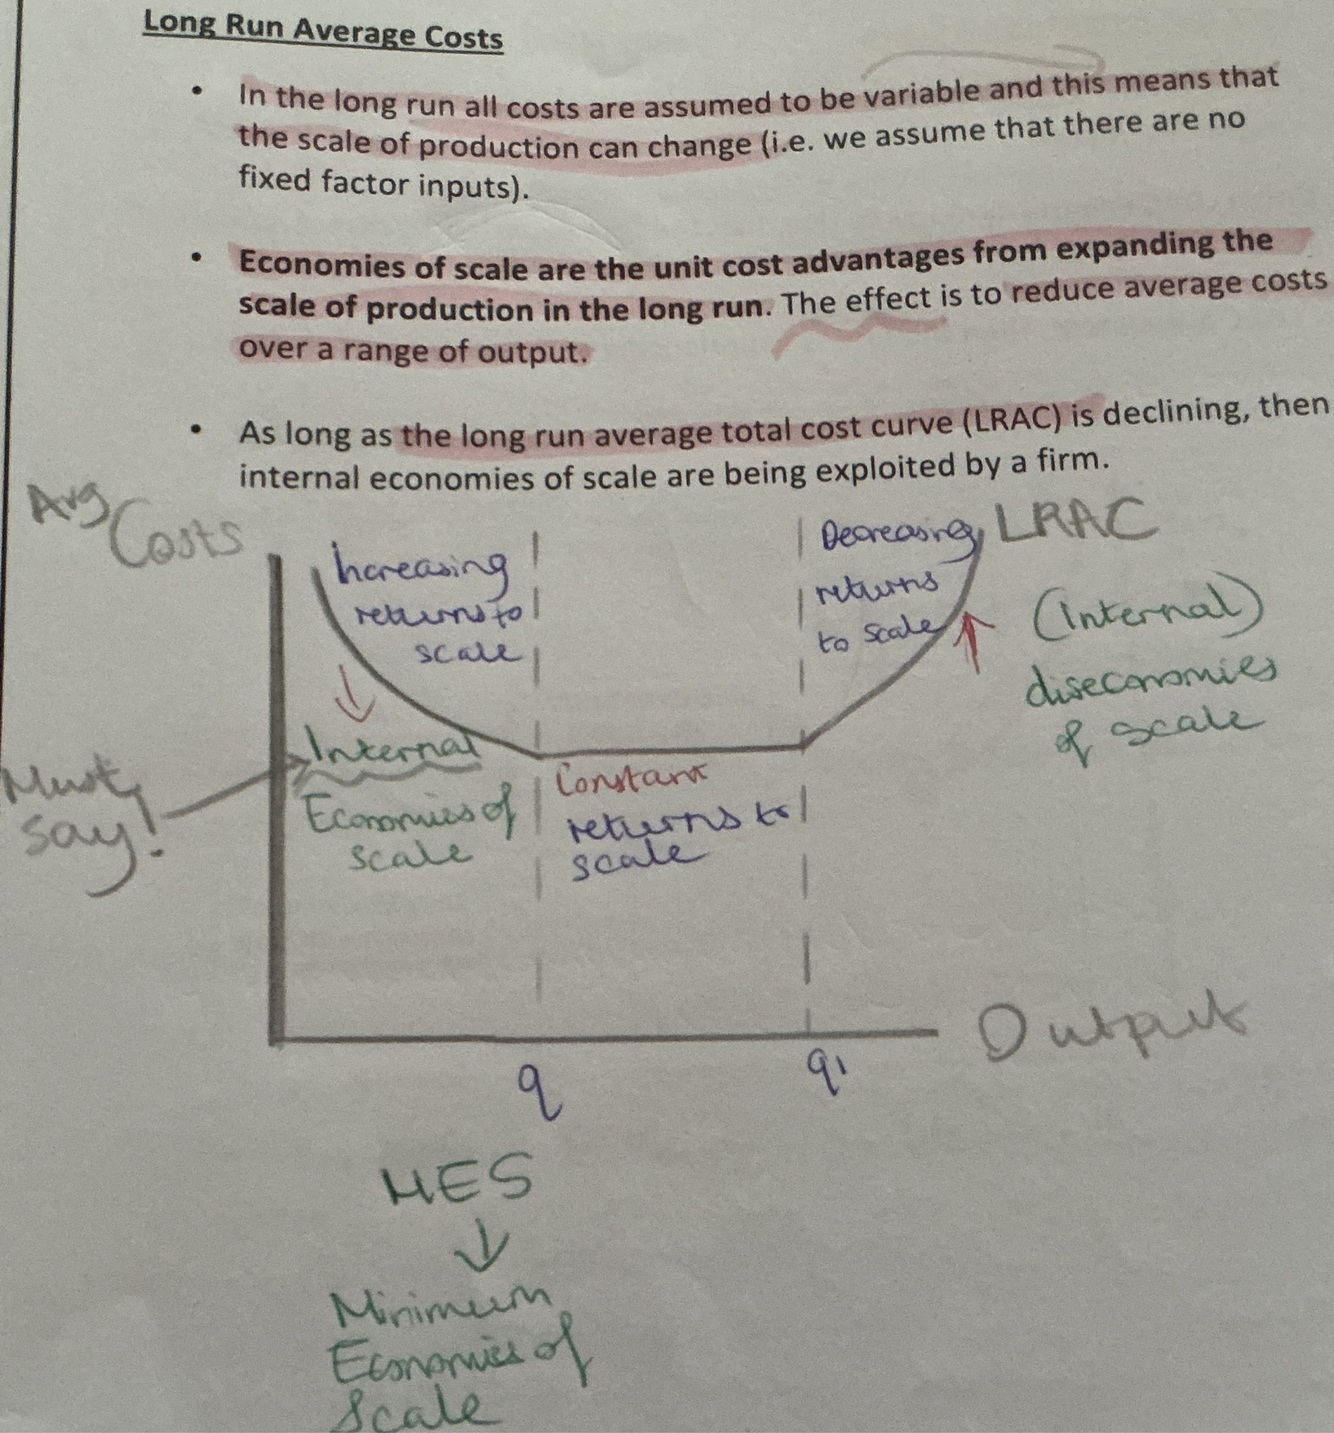 Long Run Average Costs
• In the long run all costs are assumed to be variable and this means that
the scale of production can change (i.e. we assume that there are no
fixed factor inputs).
• Economies of scale are the unit cost advantages from expanding the
scale of production in the long run. The effect is to reduce average costs
over a range of output.
• As long as the long run average total cost curve (LRAC) is declining, then
internal economies of scale are being exploited by a firm.
Avg
Costs
Increasing
returns to
scale
Decreasing
returns
to scale
LRAC
(Internal)
diseconomies
of scale
Must
say!
Internal
Economies of
scale
Constant
returns to
scale
Output
q
q1
MES
Minimum
Economies of
Scale